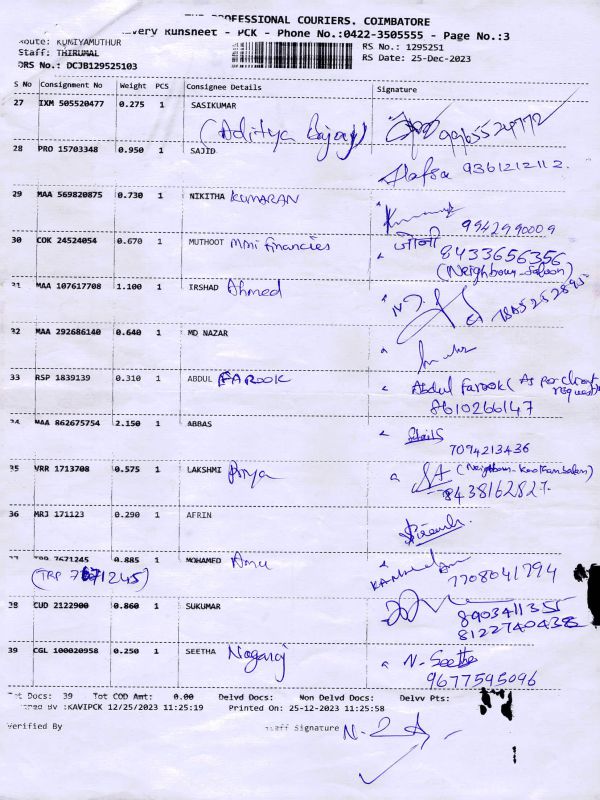 PROFESSIONAL COURIERS. COIMBATORE
Runsheet - PCK - Phone No.:0422-3505555 - Page No.:3
Route: KUNIYAMUTHUR
Staff: THIRUMAL
DRS No.: DCJB129525103
RS No.: 1295251
RS Date: 25-Dec-2023
S No Consignment No Weight PCS Consignee Details Signature
27 IXM 505520477 0.275 1 SASIKUMAR
(Aditya Bajaj)
28 PRO 15703348 0.950 1 SAJID
Hafsa 9361212112.
29 MAA 569820875 0.730 1 NIKITHA KUMARAN
9942990009
30 COK 24524054 0.670 1 MUTHOOT Mini Financies
जोनी 8433656356
(Neighbour-Saloon)
31 MAA 107617708 1.100 1 IRSHAD Ahmed
32 MAA 292686140 0.640 1 MD NAZAR
33 RSP 1839139 0.310 1 ABDUL FAROOK
Abdul Farook (As per client request)
8610266147
34 MAA 862675754 2.150 1 ABBAS
7094213436
35 VRR 1713708 0.575 1 LAKSHMI Priya
8438162827
36 MRJ 171123 0.290 1 AFRIN
37 TRP 7671245 0.885 1 MOHAMED
(TRP 7671245)
7708041794
38 CUD 2122900 0.860 1 SUKUMAR
8903411355
8122740438
39 CGL 100020958 0.250 1 SEETHA Nagaraj
N. Seetha
9677595096
Tot Docs: 39 Tot COD Amt: 0.00 Delvd Docs: Non Delvd Docs: Delvv Pts:
By :KAVIPCK 12/25/2023 11:25:19 Printed On: 25-12-2023 11:25:58
Verified By Staff Signature